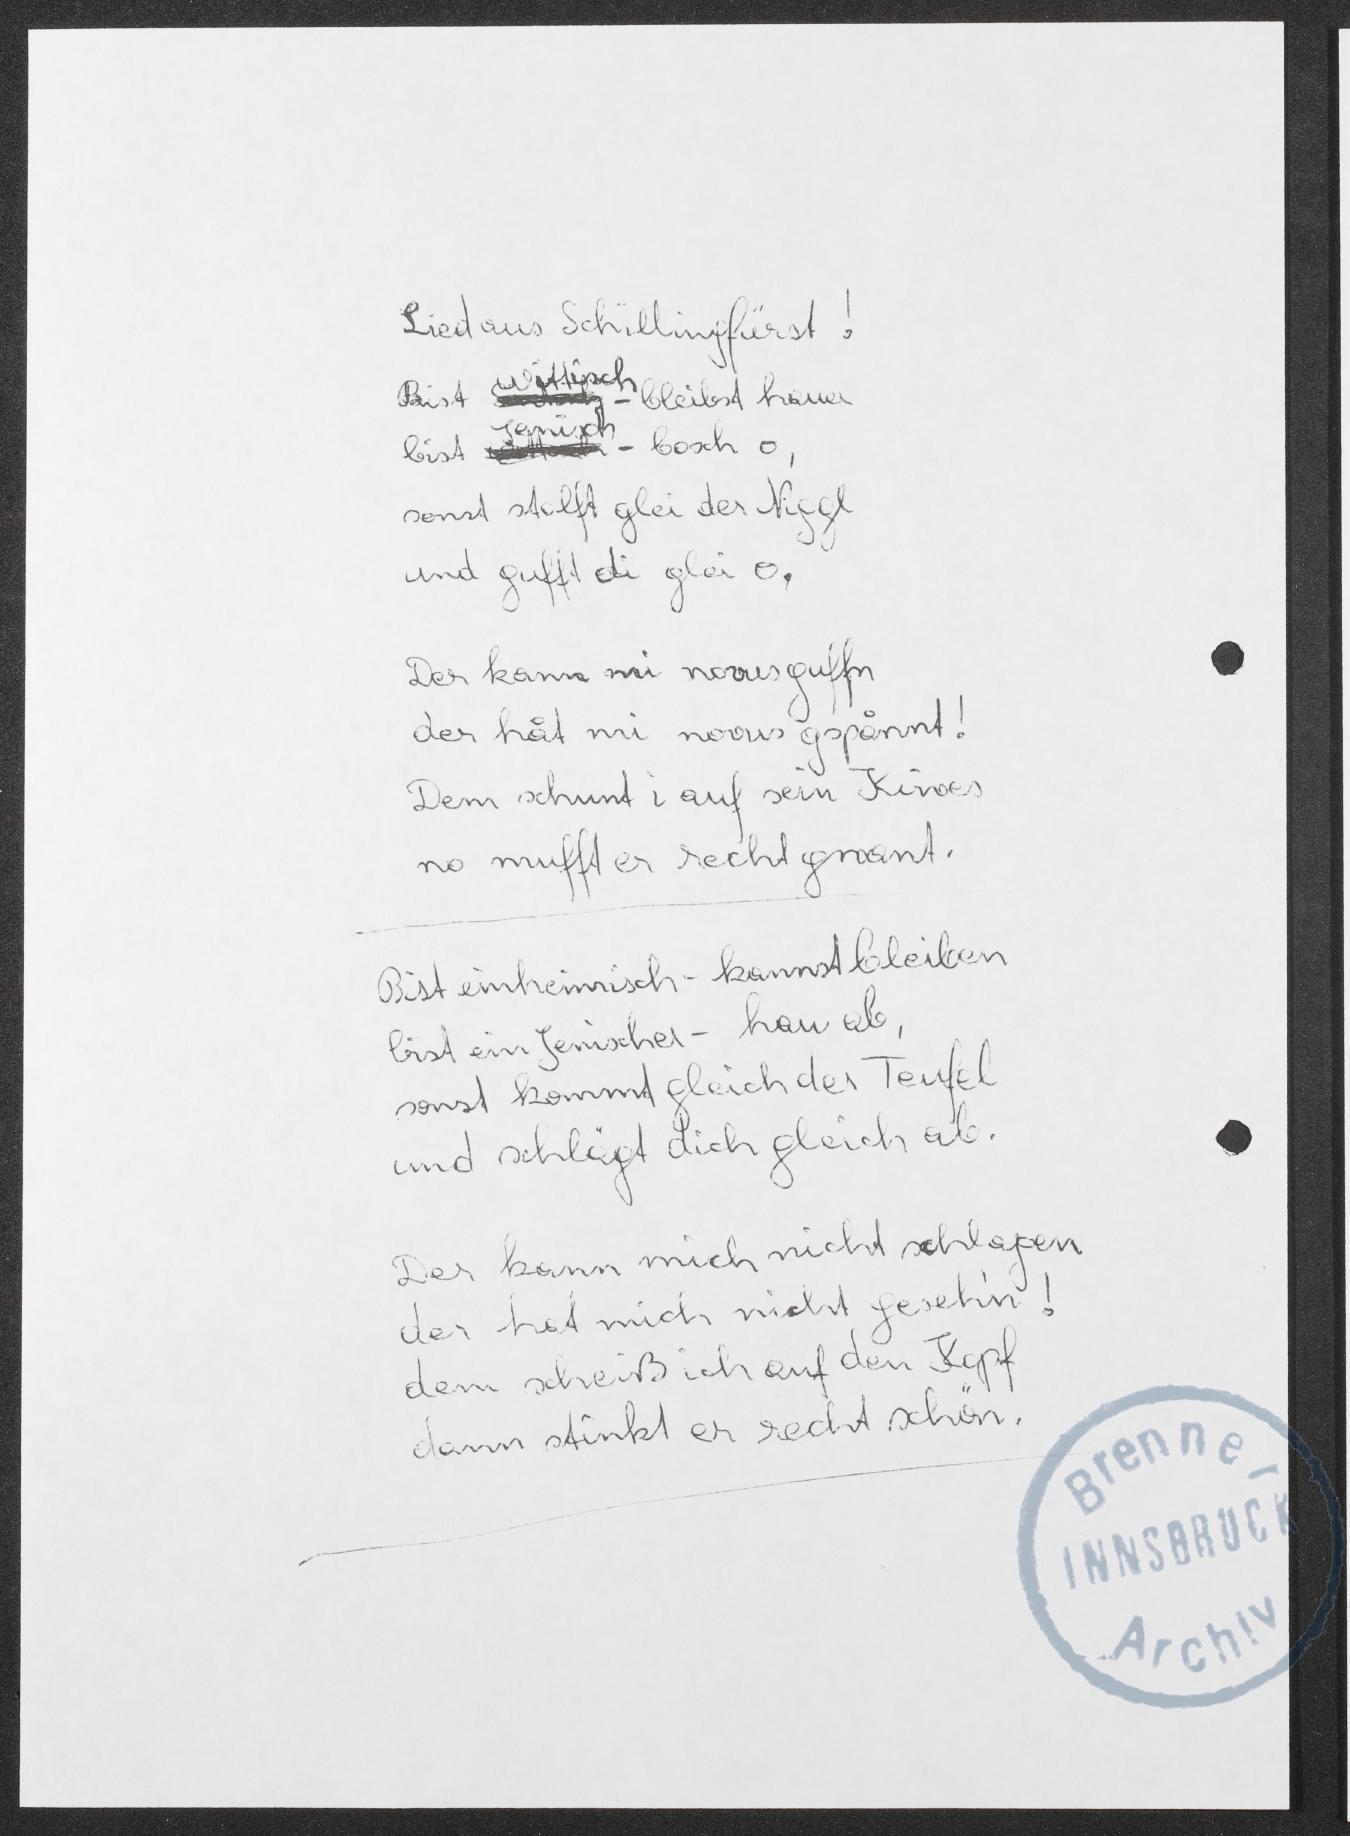 Lied aus Schillingfürst!
Bist wittisch - bleibst haua
bist jenisch - bosch o,
sonst stolft glei der Niggl
und gufft di glei o.
Der kann mi novusguffn
der håt mi novus gspånnt!
Dem schunt i auf sein Kiwes
no mufft er recht gwant.
Bist einheimisch - kannst bleiben
bist ein Jenischer - hau ab,
sonst kommt gleich der Teufel
und schlägt dich gleich ab.
Der kann mich nicht schlagen
der hat mich nicht geseh'n!
dem scheiß ich auf den Kopf
dann stinkt er recht schön.
Brenner
INNSBRUCK
Archiv